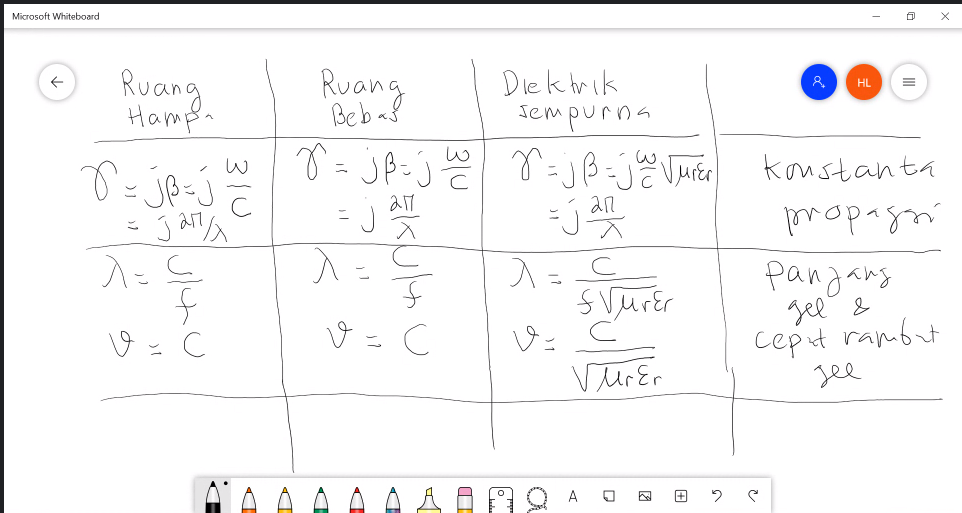 Microsoft Whiteboard
HL
Ruang
Hampa
Ruang
Bebas
Diektrik
sempurna
γ = jβ = j ω/c
= j 2π/λ
γ = jβ = j ω/c
= j 2π/λ
γ = jβ = j ω/c √μrεr
= j 2π/λ
Konstanta
propagasi
λ = C/f
v = C
λ = C/f
v = C
λ = C/f√μrεr
v = C/√μrεr
Panjang
gel &
cepat rambat
gel
A